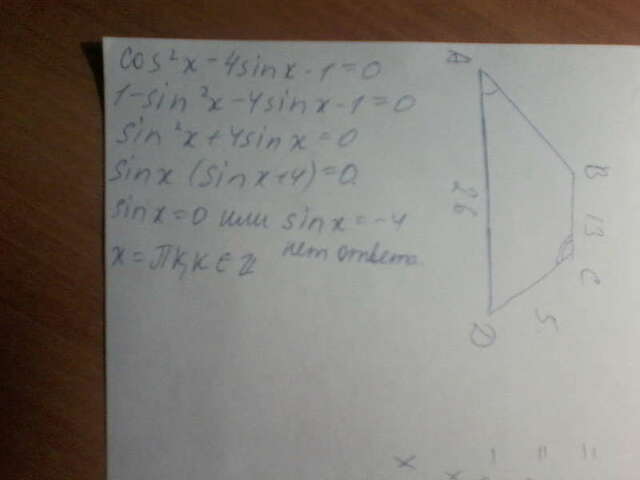 cos²x - 4sinx - 1 = 0
1 - sin²x - 4sinx - 1 = 0
sin²x + 4sinx = 0
sinx (sinx + 4) = 0
sinx = 0 или sinx = -4
x = πk, k ∈ ℤ нет ответа
A
B
26
13
C
5
D
x